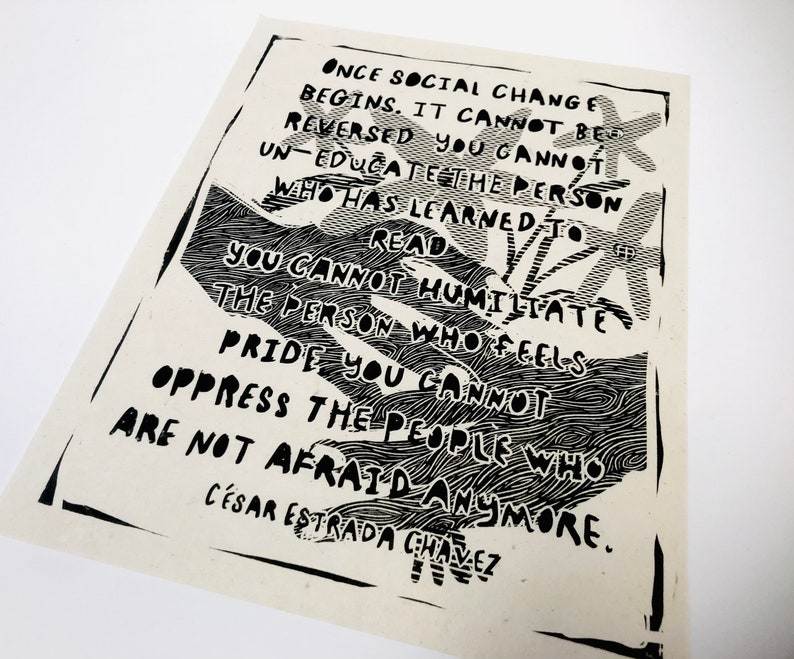 ONCE SOCIAL CHANGE
BEGINS. IT CANNOT BE
REVERSED YOU CANNOT
UN-EDUCATE THE PERSON
WHO HAS LEARNED TO
READ
YOU CANNOT HUMILIATE
THE PERSON WHO FEELS
PRIDE. YOU CANNOT
OPPRESS THE PEOPLE WHO
ARE NOT AFRAID ANYMORE.
CÉSAR ESTRADA CHÁVEZ